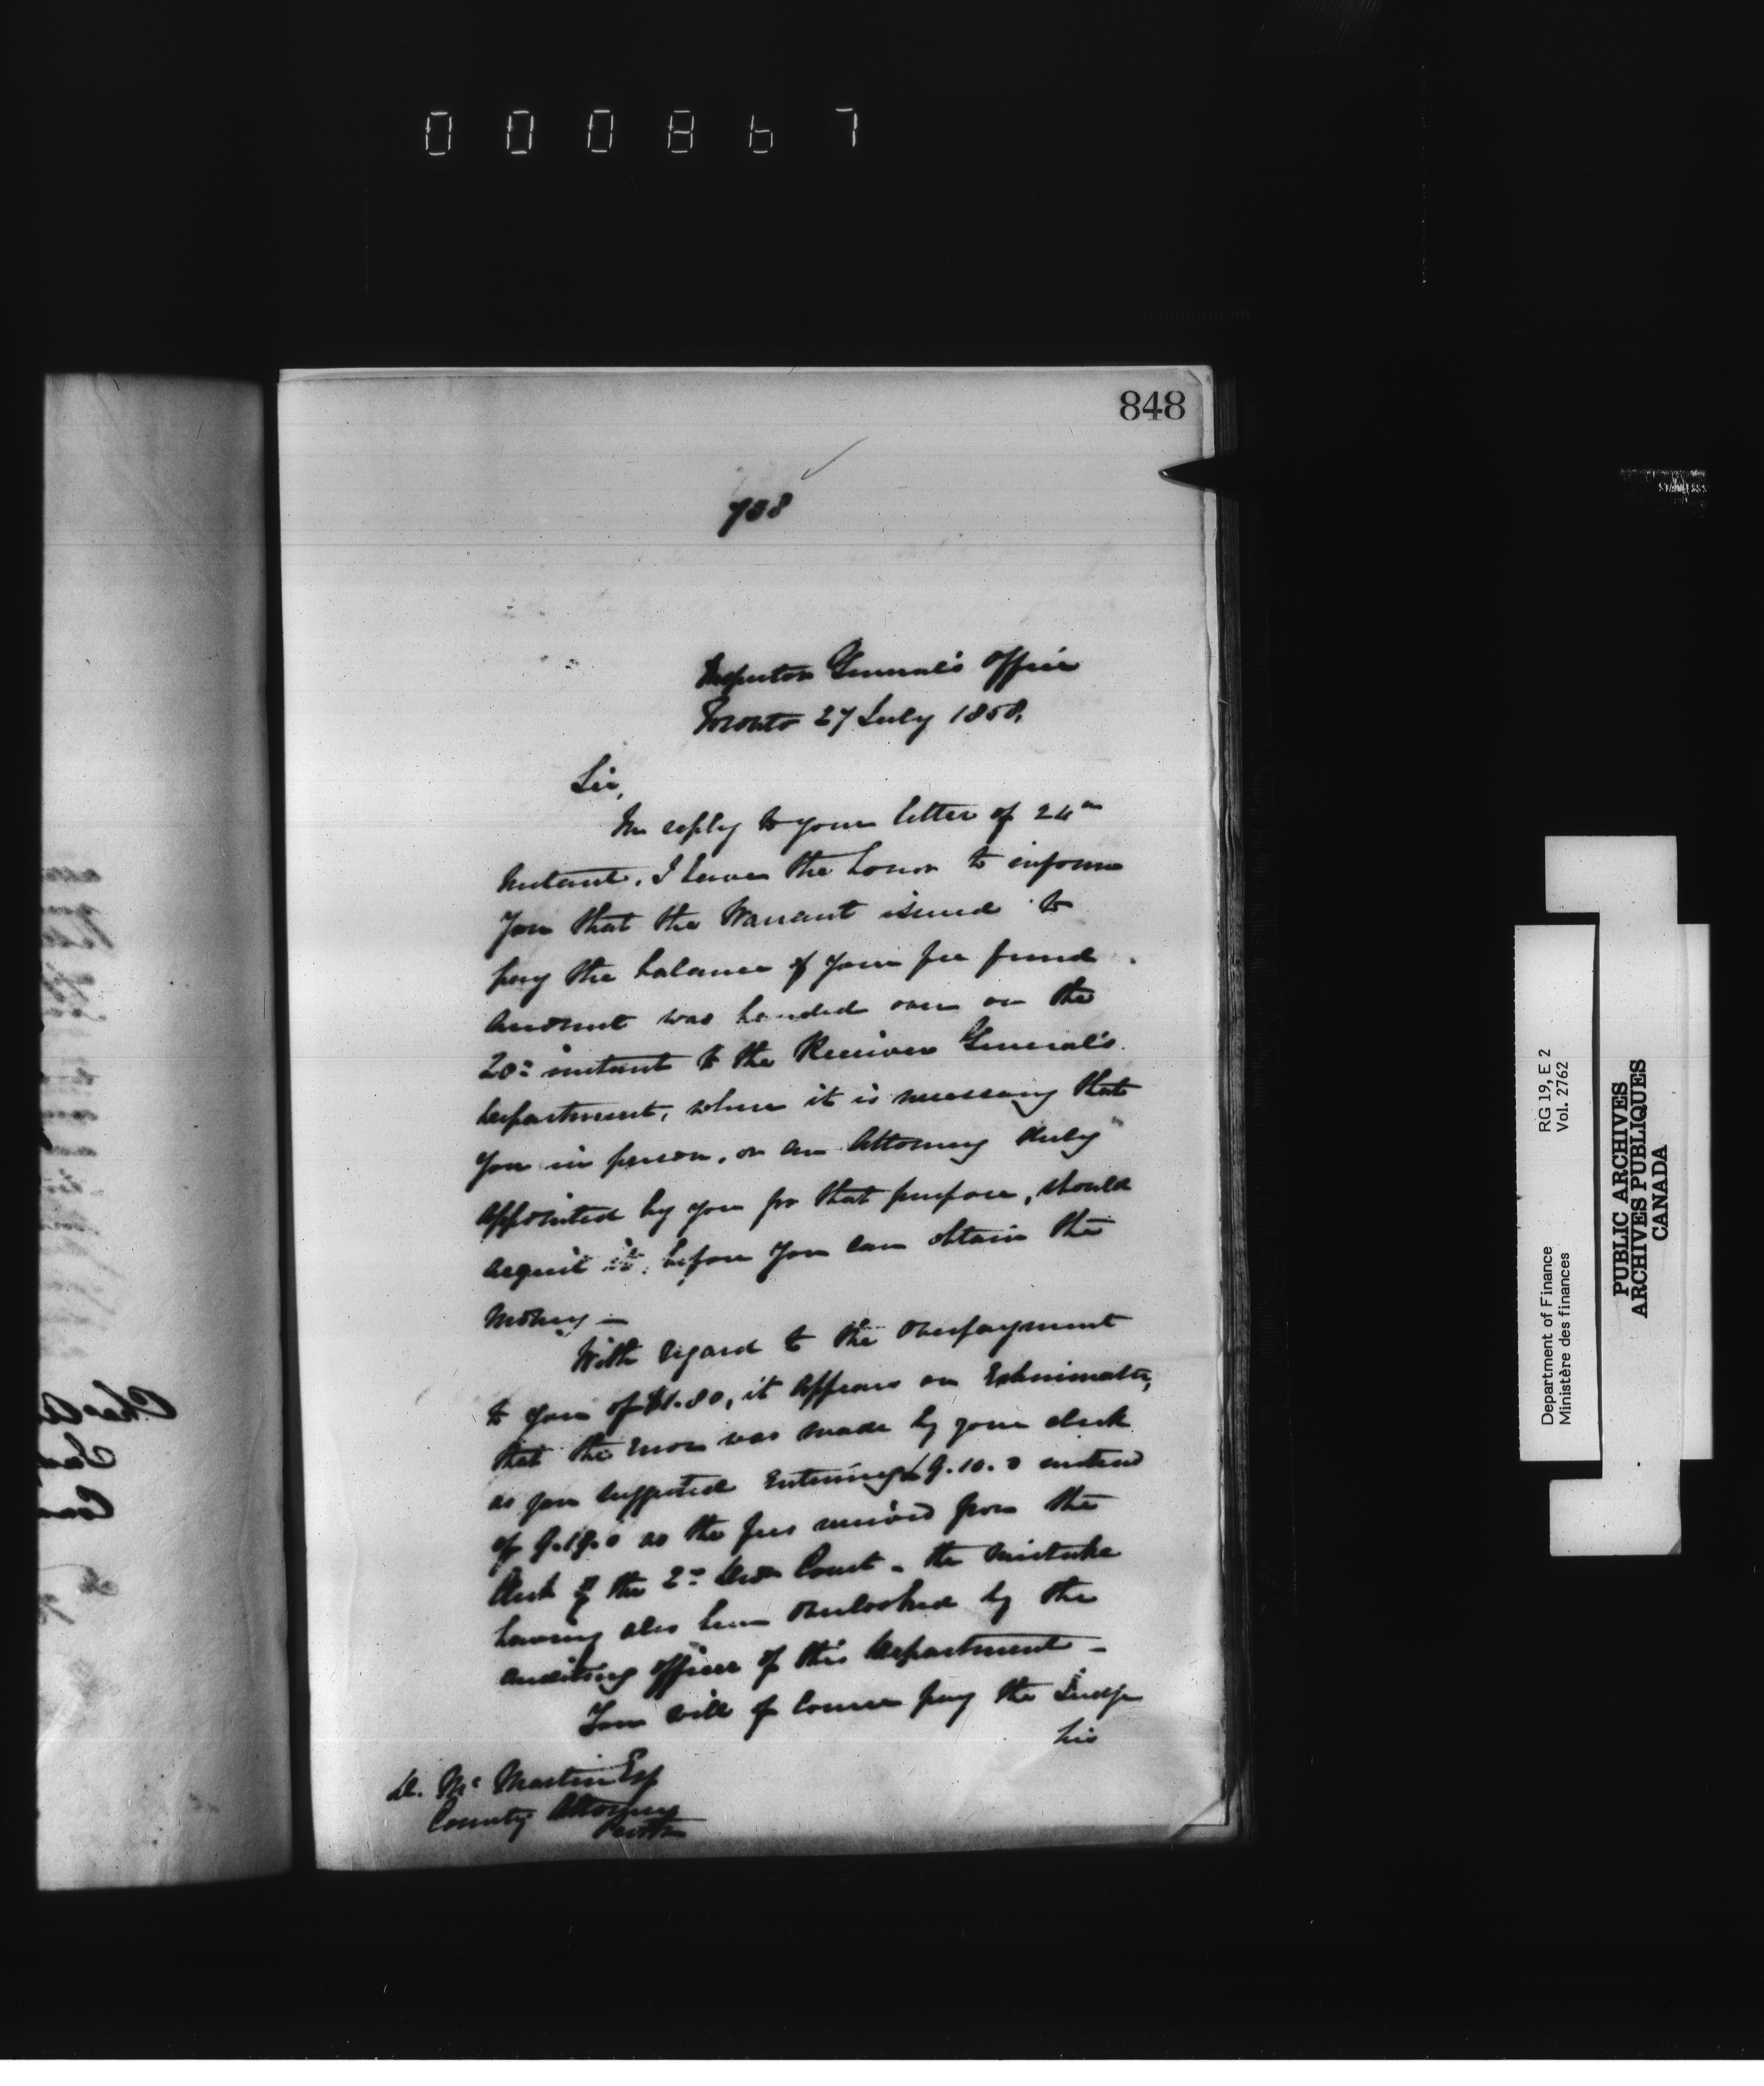 000867
848
738
Inspector General's Office
Toronto 27 July 1858.
Sir,
In reply to your letter of 24th
Instant, I have the honor to inform
You that the Warrant issued to
pay the balance of your fee fund
Account was handed over on the
20th instant to the Receiver General's
Department, where it is necessary that
You in person, or an Attorney duly
Appointed by you for that purpose, should
Acquit it, before You can obtain the
Money —
With regard to the overpayment
to you of $1.80, it Appears on Examination,
that the Error was made by your clerk
as you suggested Entering £9.10.0 instead
of 9.19.0 as the fees received from the
Clerk of the 2nd Divn Court - the mistake
having also been Overlooked by the
auditing officer of this Department -
You will of Course pay the Judge
his
D. McMartin Esq
County Attorney
Perth
Department of Finance RG 19, E 2
Ministère des finances Vol. 2762
PUBLIC ARCHIVES
ARCHIVES PUBLIQUES
CANADA